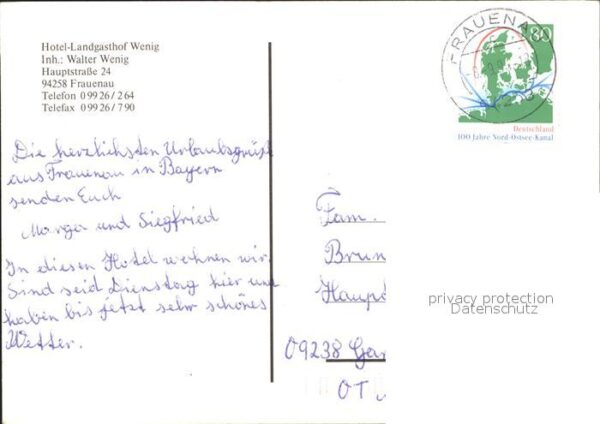 Hotel-Landgasthof Wenig
Inh.: Walter Wenig
Hauptstraße 24
94258 Frauenau
Telefon 0 99 26 / 2 64
Telefax 0 99 26 / 7 90
Die herzlichsten Urlaubsgrüße
aus Frauenau in Bayern
senden Euch
Marga und Siegfried
In diesen Hotel wohnen wir.
Sind seid Dienstag hier und
haben bis jetzt sehr schönes
Wetter.
FRAUENAU
80
Deutschland
100 Jahre Nord-Ostsee-Kanal
Fam.
Brun
Haupt
privacy protection
Datenschutz
09238
OT